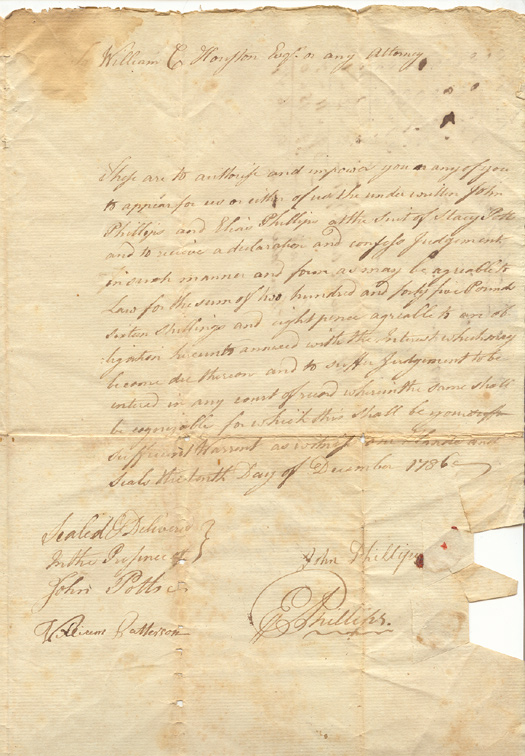 To William C Houston Esqr. or any Attorney
These are to authorise and impower you or any of you
to appear for us or either of us the under written John
Phillips and Elias Phillips at the Suit of Stacy Potts
and to receive a declaration and confess Judgement
in such manner and form as may be agreable to
Law for the sum of two hundred and forty five Pounds
sixteen Shillings and eight pence agreable to an ob
ligation hereunto annexed with the Interest which may
become due thereon and to suffer Judgement to be
entered in any court of record wherein the same shall
be cognizable for which this shall be your
sufficient Warrant as witness our Hands and
Seals the tenth Day of December 1786
Sealed & Delivered
In the Presence of
John Potts
William Patterson
John Phillips
E Phillips.